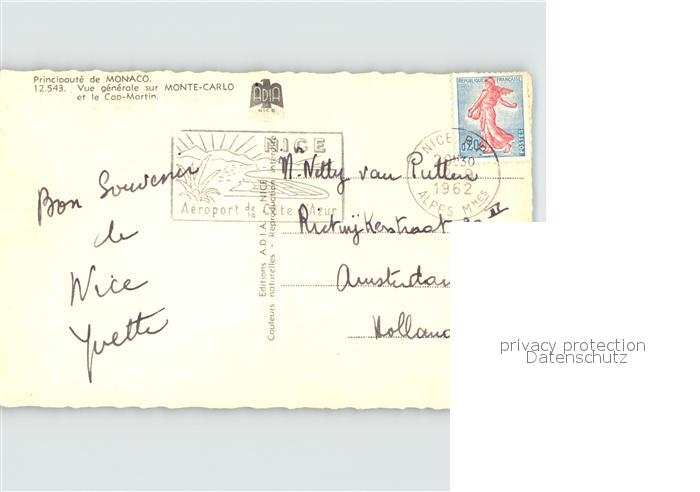 Principauté de MONACO.
12.543. Vue générale sur MONTE-CARLO
et le Cap-Martin.
ADIA
NICE
REPUBLIQUE FRANÇAISE
0,20
POSTES
NICE
Aéroport de la Côte d'Azur
NICE
1962
ALPES MMES
Editions A.D.I.A. - NICE
Couleurs naturelles - Reproduction interdite
Bon Souvenir
de
Nice
Yvette
Netty van
Amsterdam
Holland
privacy protection
Datenschutz